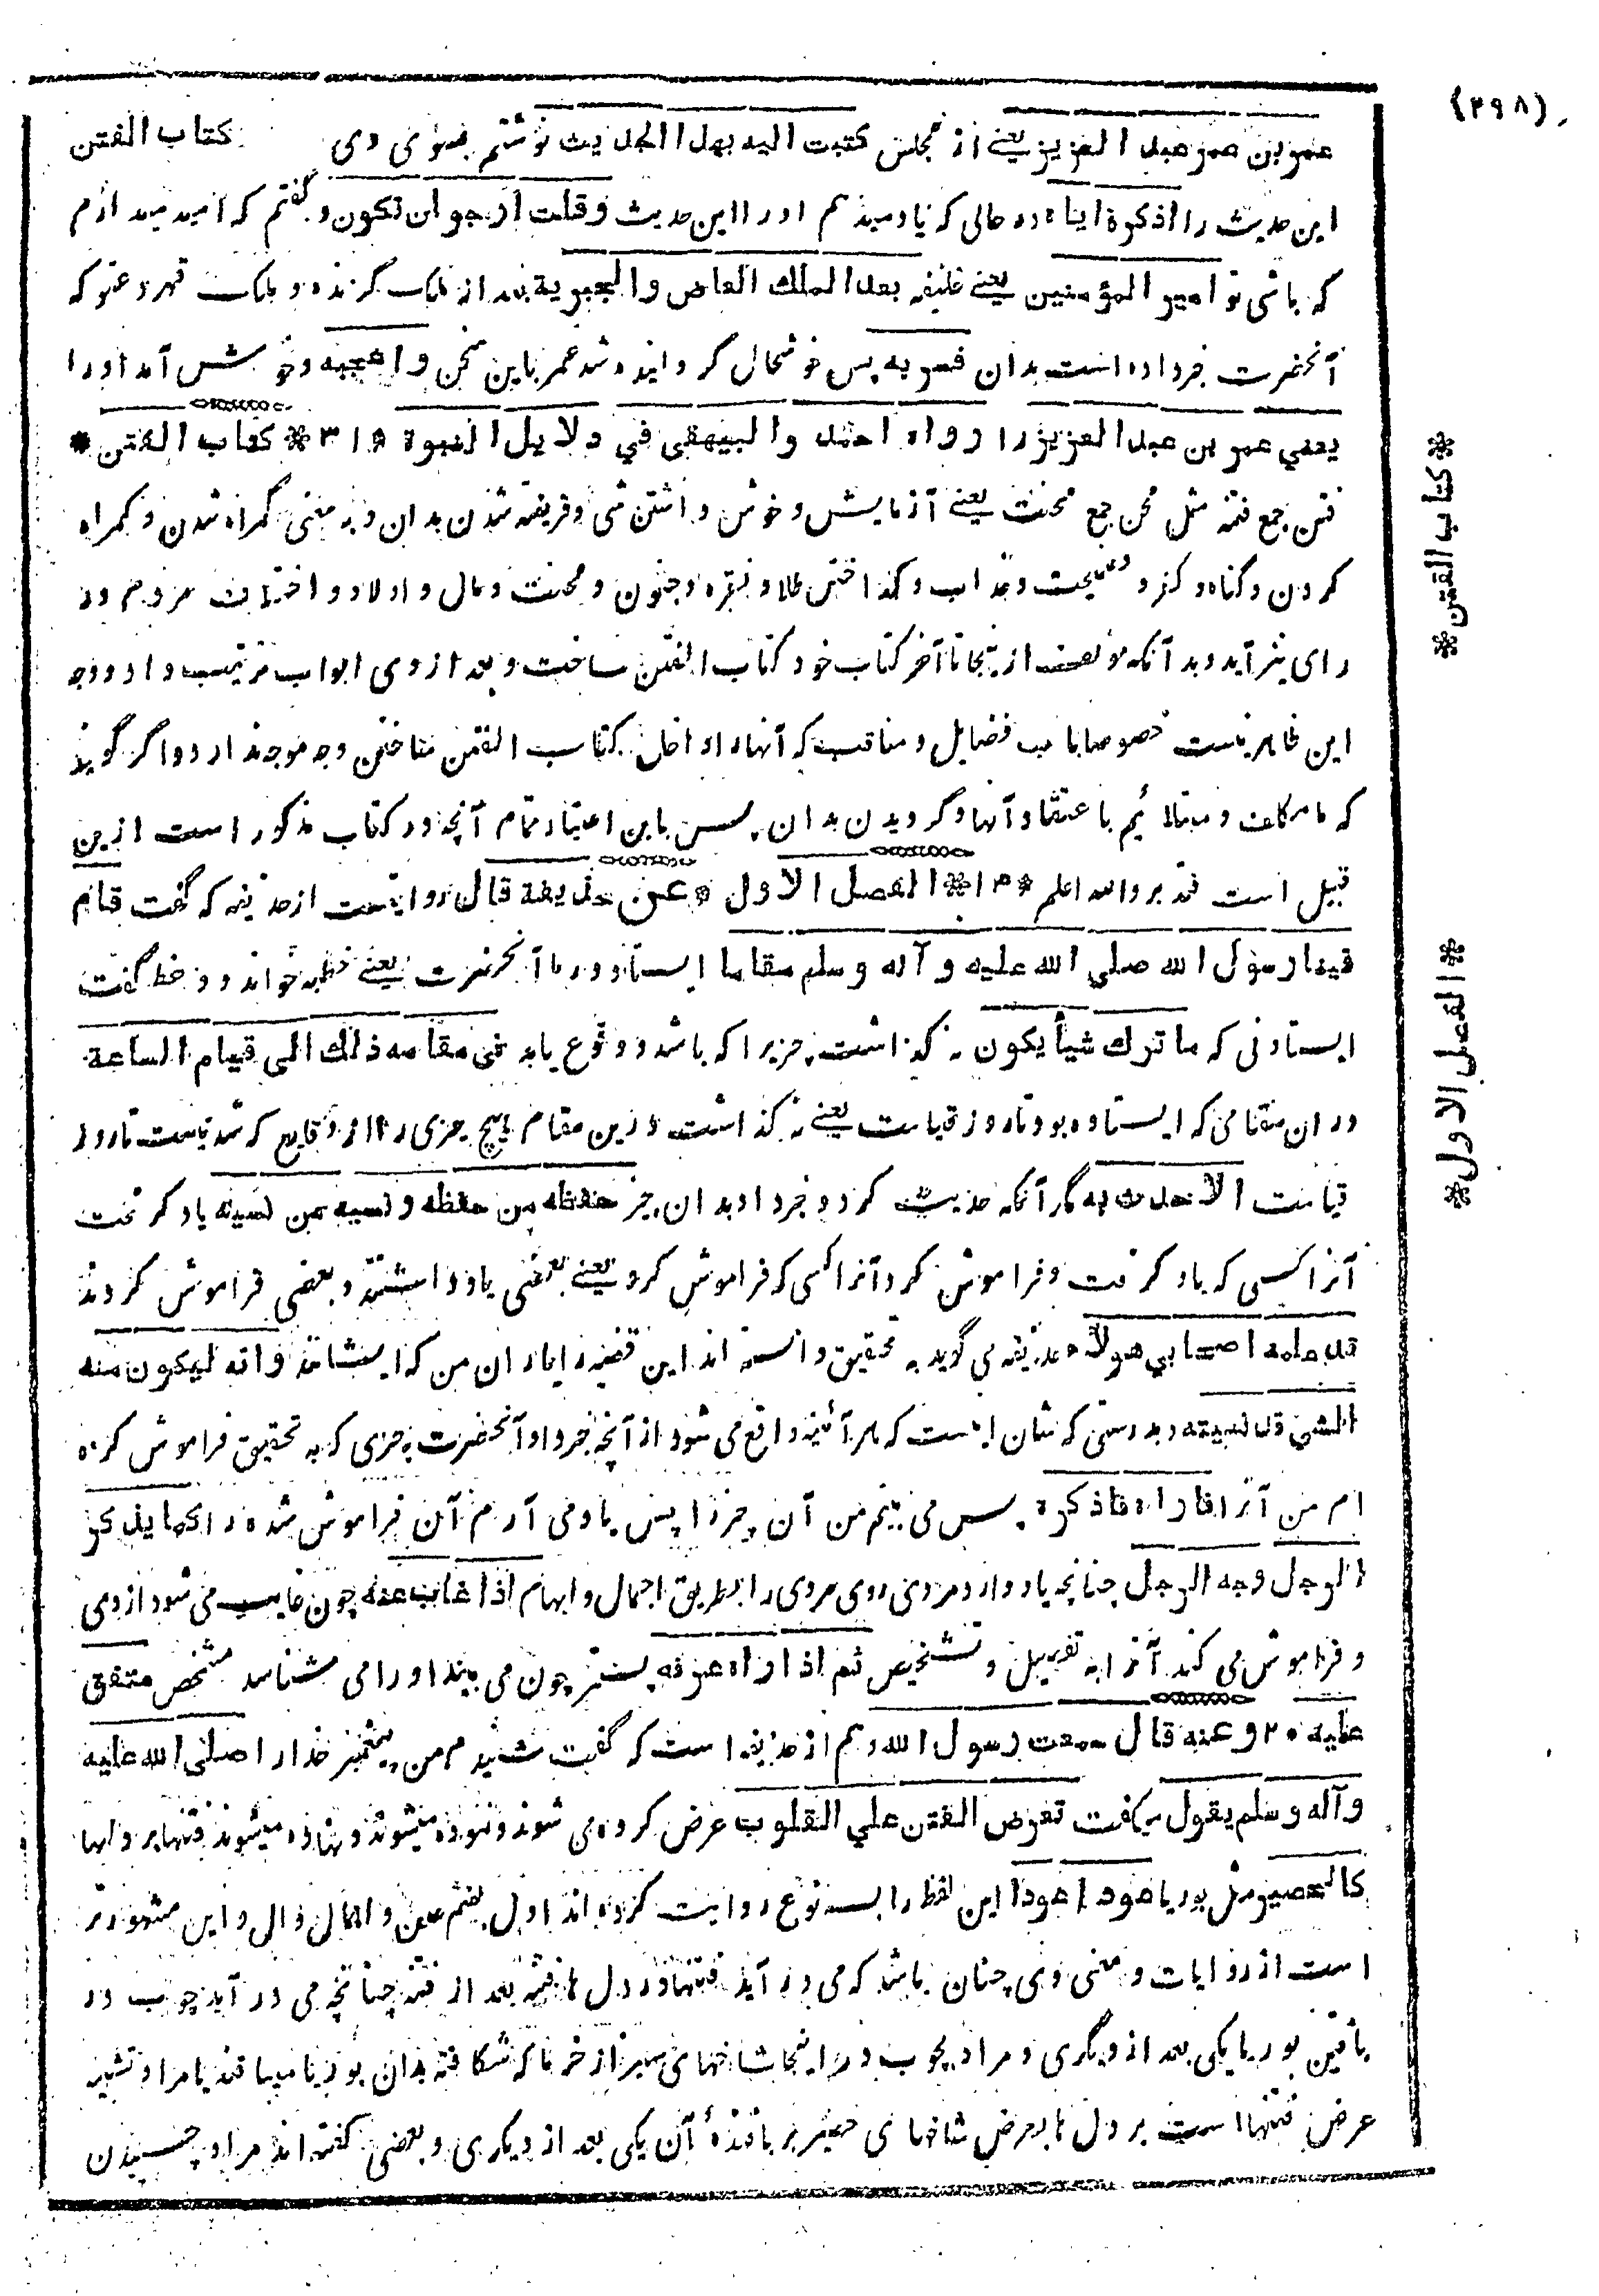 (۲۹۸)
عمر بن عبد العزیز یعنے از مجلس کتبت الیه بهذا الحدیث نوشتم بسوی وی کتاب الفتن
این حدیث را اذکره ایاه در حالی که یاد میدهم او را این حدیث و قلت ارجو ان تکون و گفتم که امید میدارم
که باشی تو امیر المؤمنین یعنے خلیفه بعد الملک العاض والجبریة بعد از ملک گزنده و ملک قهر و عتو که
آنحضرت خبر داده است بدان فسر به پس خوشحال گردانیده شد عمر باین سخن و اعجبه و خوش آمد او را
یعني عمر بن عبد العزیز را رواه احمد والبیهقی في دلایل النبوة * کتاب الفتن *
فتن جمع فتنه مثل محن جمع محنت یعنے آزمایش و خوش داشتن شی و فریفته شدن بدان و به معنی گمراه شدن و گمراه
کردن و گناه و کفر و فضیحت و عذاب و گداختن طلا و نقره و جنون و محنت و مال و اولاد و اختلاف مردم در
رای نیز آید و بدآنکه مؤلف از ینجا تا آخر کتاب خود کتاب الفتن ساخت و بعد از وی ابواب ترتیب داد و وجه
این ظاهر نیست خصوصا باب فضایل و مناقب که آنها را داخل کتاب الفتن ساختن وجه موجه ندارد و اگر گویند
که ما مکلف و مبتلائیم باعتقاد آنها و گرویدن بدان پس باین اعتبار تمام آنچه در کتاب مذکور است ازین
قبیل است فتدبر والله اعلم * الفصل الاول * عن حذیفة قال روایتست از حذیفه که گفت قام
فینا رسول الله صلی الله علیه و آله و سلم مقاما ایستاد در ما آنحضرت یعنے خطبه خواند و وعظ گفت
ایستادنی که ما ترك شیأ یکون نه گذاشت چیزیرا که باشد و وقوع یابد في مقامه ذلك الی قیام الساعة
در ان مقامی که ایستاده بود تا روز قیامت یعنے نه گذاشت درین مقام هیچ چیزی را از وقایع که شدنیست تا روز
قیامت الا حدث به مگر آنکه حدیث کرد و خبر داد بدان چیز حفظه من حفظه و نسیه من نسیه یاد گرفت
آنرا کسی که یاد گرفت و فراموش کرد آنرا کسی که فراموش کرد یعنے بعضی یاد داشتند و بعضی فراموش کردند
قد علمه اصحابي هولاء حذیفه می گوید به تحقیق دانسته اند این قضیه را یاران من که ایشانند و انه لیکون منه
الشئ قد نسیته و بدرستی که شان اینست که هر آئینه واقع می شود از آنچه خبر داد آنحضرت چیزی که به تحقیق فراموش کرده
ام من آنرا فاراه فاذکره پس می بینم من آن چیز را پس یاد می آرم آن فراموش شده را کما یذکر
الرجل وجه الرجل چنانچه یاد دارد مردی روی مردی را بطریق اجمال و ابهام اذا غاب عنه چون غایب می شود از وی
و فراموش می کند آنرا به تفصیل و تشخیص ثم اذا راه عرفه پستر چون می بیند او را می شناسد مشخص متفق
علیه ۲ وعنه قال سمعت رسول الله و هم از حذیفه است که گفت شنیدم من پیغمبر خدا را صلی الله علیه
وآله و سلم یقول میگفت تعرض الفتن علي القلوب عرض کرده می شوند و نموده میشوند و نهاده میشوند فتنها بر دلها
کالحصیر مثل بوریا عودا عودا این لفظ را بسه نوع روایت کرده اند اول بضم عین و اهمال دال و این مشهورتر
است از روایات و معنی وی چنان باشد که می در آید فتنها در دل ها فتنه بعد از فتنه چنانچه می در آید چوب در
بافتن بوریا یکی بعد از دیگری و مراد بچوب در اینجا شاخهای سبز از خرما که شکافته بدان بوریا میبافند یا مراد تشبیه
عرض فتنها است بر دل ها بعرض شاخهای حصیر بر بافندهٔ آن یکی بعد از دیگری و بعضی گفته اند مراد چسپیدن
* کتاب الفتن *
* الفصل الاول *